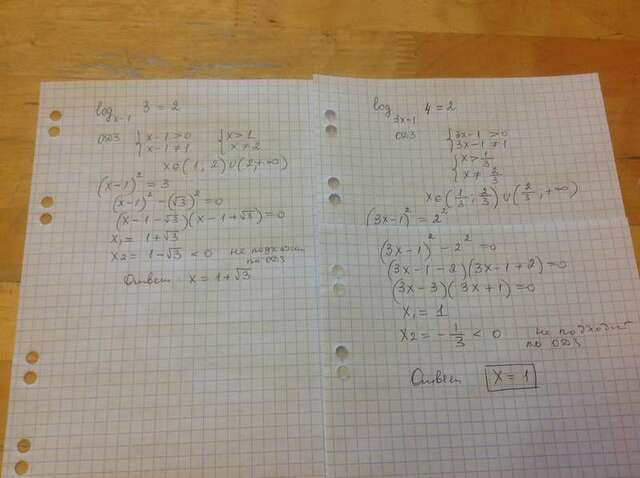 log_{x-1} 3 = 2
ОДЗ { x-1>0 { x>1
{ x-1≠1 { x≠2
x∈(1, 2)∪(2,+∞)
(x-1)² = 3
(x-1)² - (√3)² = 0
(x-1-√3)(x-1+√3)=0
x₁ = 1+√3
x₂ = 1-√3 < 0 не подходит
по ОДЗ
Ответ x = 1+√3
log_{3x-1} 4 = 2
ОДЗ { 3x-1>0
{ 3x-1≠1
{ x>1/3
{ x≠2/3
x∈(1/3; 2/3)∪(2/3, +∞)
(3x-1)² = 2²
(3x-1)² - 2² = 0
(3x-1-2)(3x-1+2)=0
(3x-3)(3x+1)=0
x₁ = 1
x₂ = -1/3 < 0 не подходит
по ОДЗ
Ответ x = 1